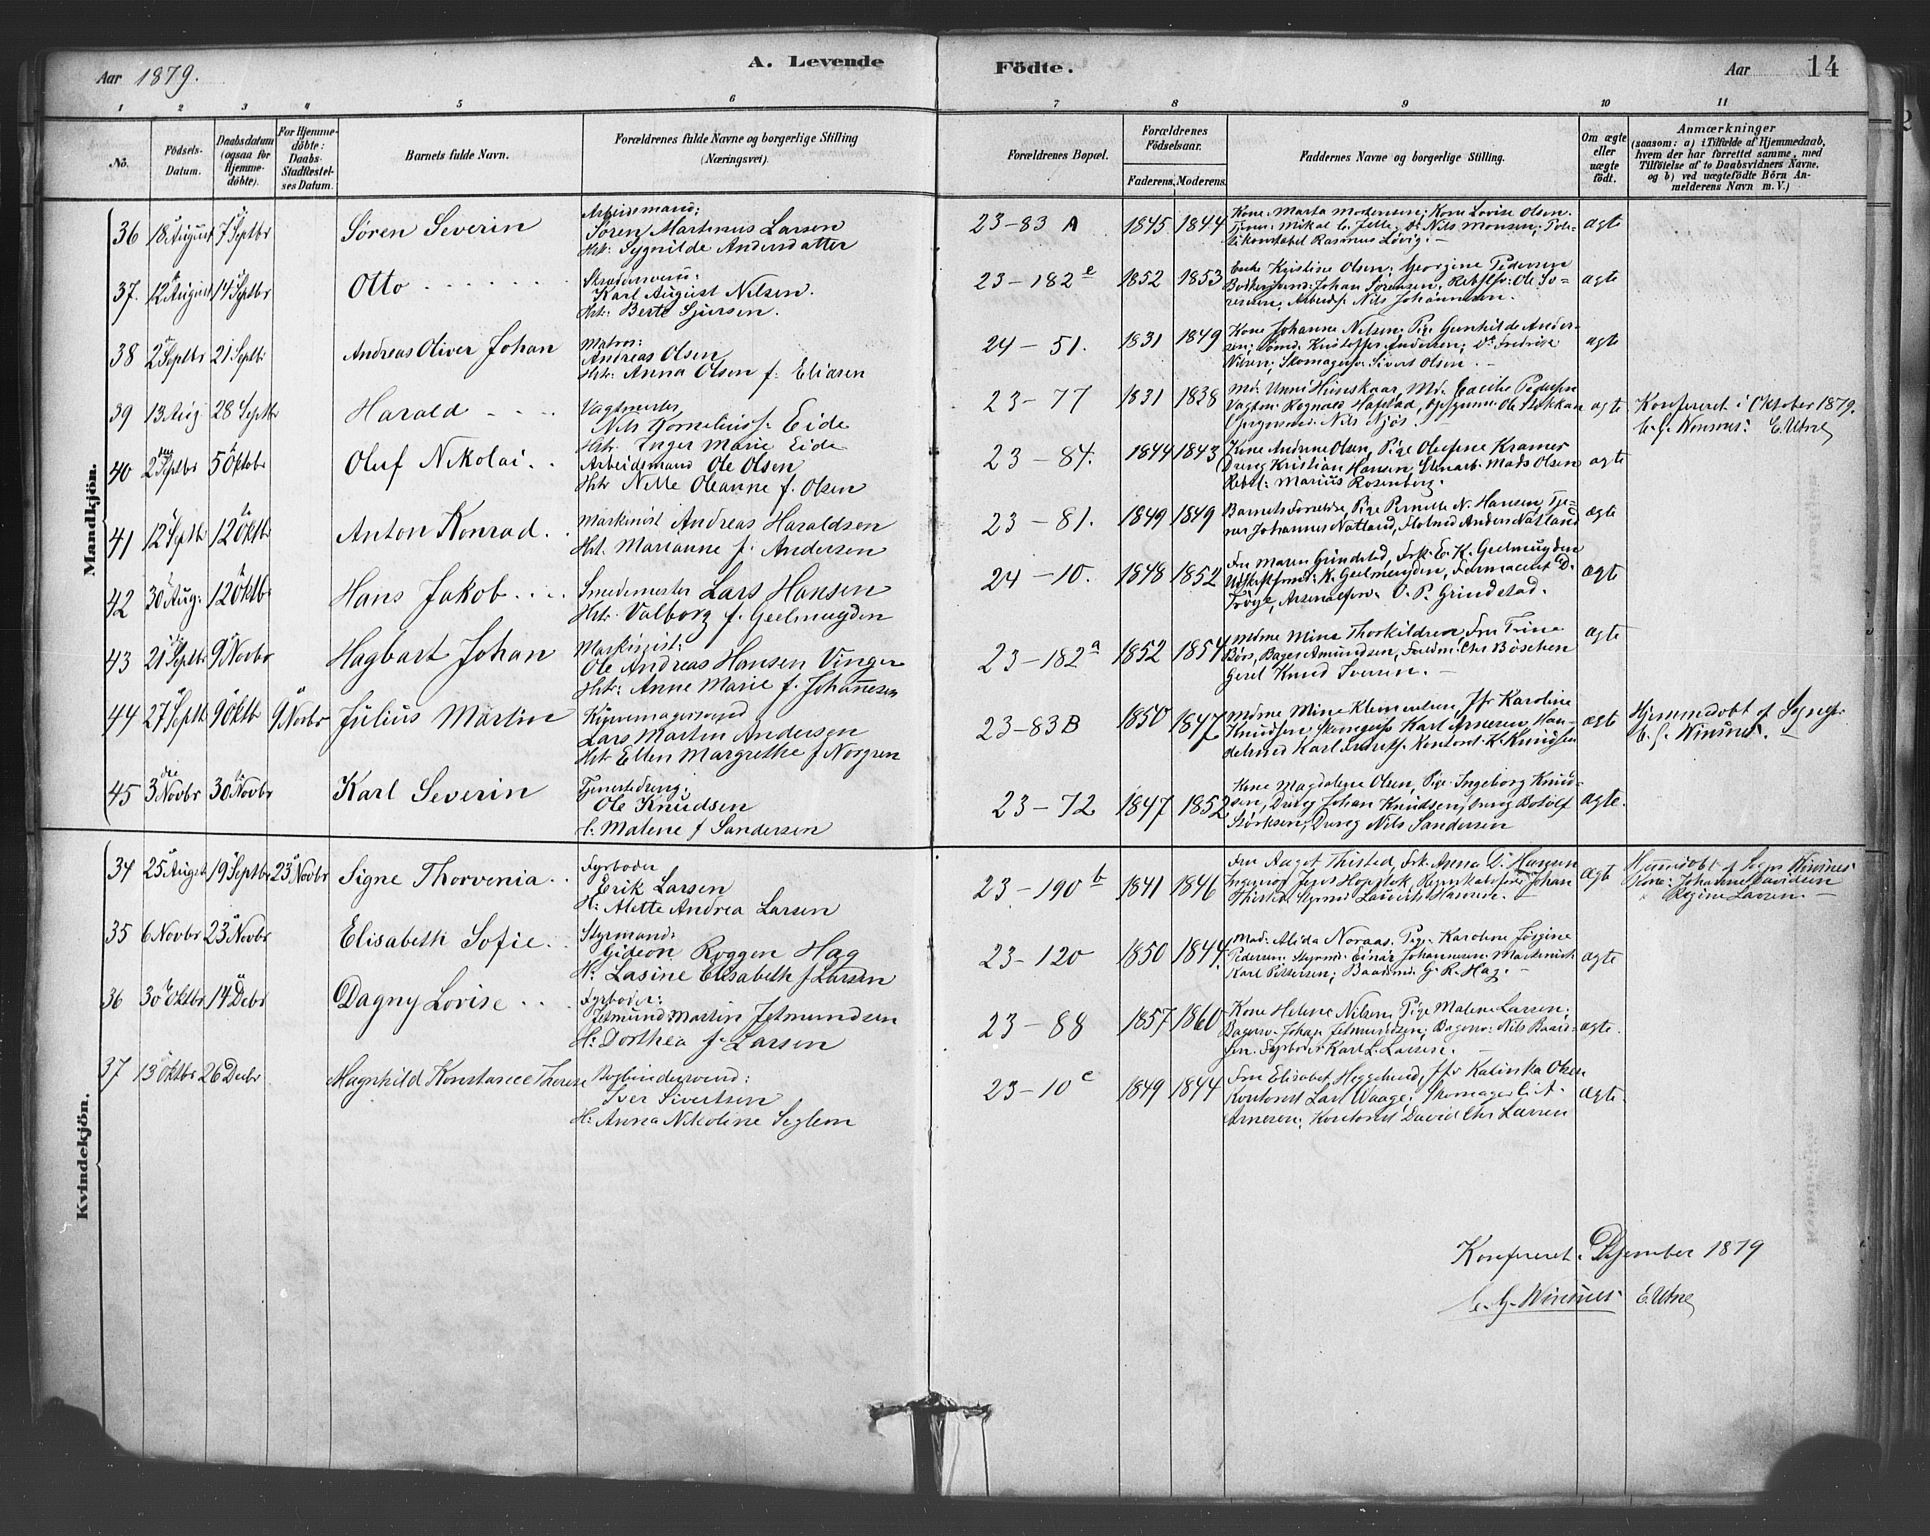 Aar 1879.
A. Levende
Födte.
Aar
14
1 2 3 4 5 6 7 8 9 10 11
No.
Födsels-Datum.
Daabsdatum (ogsaa for Hjemme-döbte).
For Hjemme-döbte: Daabs-Stadfæstel-ses Datum.
Barnets fulde Navn.
Forældrenes fulde Navne og borgerlige Stilling (Næringsvei).
Forældrenes Bopæl.
Forældrenes Födselsaar.
Faderens. Moderens.
Faddernes Navne og borgerlige Stilling.
Om ægte eller uægte født.
Anmærkninger
(saasom: a) i Tilfælde af Hjemmedaab, hvem der har forrettet samme, med Tilföielse af to Daabsvidners Navne. og b) ved uægtefödte Börn An-melderens Navn m. V.)
Mandkjön.
36 18 August 7 Septbr Søren Severin
Arbeidsmand:
Søren Martinus Larsen
Hst: Sygnilde Andersdatter
23-83 A 1845 1844
Kone Marta Mortensen; Kone Lovise Olsen.
Mikal C. Jelle; Do Nils Monsen; Poli-
tikonstabel Rasmus Løvig. -
ægte
37. 12 August 14 Septbr Otto
Karl August Nilsen.
Hst: Berte Sjursen.
23-182 e 1852 1853
Enke Kristine Olsen; Georgine Pedersen
Johan Sørensen, Ole So-
rensen, Arbeids. Nils Johannesen.
ægte
38 2 Septbr 21 Septb: Andreas Oliver Johan
Matros:
Andreas Olsen
Hst: Anna Olsen f. Eliasen
24-51. 1831 1849
Kone Johanne Nilsen; Pige Gunhilde Ander-
sen; Kristoffer Andersen; Do Fredrik
Nilsen; Skomagersv. Sivert Olsen.
ægte
39 13 Aug 28 Septbr Harald
Vagtmester,
Nils Kornelius f. Eide
Hst. Inger Marie Eide
23-77 1831 1838
ægte
Konfereret i Oktober 1879.
E. Utne
40 2 Septbr 5 Oktobr Oluf Nikolai
Arbeidsmand Ole Olsen
Hst Nille Oleanne f. Olsen
23-84. 1844 1843
Kone Andrine Olsen, Pige Olufine Kramer
Dreng Kristian Hansen, Mads Olsen
Marius Rosenberg.
ægte
41 12 Septbr 12 Oktbr Anton Konrad
Maskinist Andreas Haraldsen
Hst. Marianne f. Andersen
23-81. 1849 1849
Barnets Forældre, Pige Pernille N. Hansen,
Johannes Natland, Anders Natland
ægte
42 30 Aug. 12 Oktbr Hans Jakob
Smedemester Lars Hansen
Hst. Valborg f. Geelmuyden
24-10. 1848 1852
Fru Maren Grindstad, Frk. E. K. Geelmuyden
K. Geelmuyden, Farmaceut D.
O. P. Grindstad.
ægte
43 21 Septbr 9 Novbr Hagbart Johan
Maskinist:
Ole Andreas Hansen Vinger
Hst: Anne Marie f. Johannesen
23-182 a 1852 1854
Mdme Mina Thorkildsen, Fru Trine
Børs, Bager Amundsen, Chr Bøschen
Gesel Knud Iversen.
ægte
44 27 Septb 9 Oktbr 9 Novbr Julius Martin
Lars Martin Andersen
Hst Ellen Margrethe f. Norgren
23-83 B 1850 1847
Mdme Mine Klementsen, Jfr Karoline
Knudsen, Karl Arnesen, Han-
delsmd Karl K. Knudsen
ægte
Hjemmedøbt af Sogne.
45 3die Novbr 30 Novbr Karl Severin
Tjenestedreng:
Ole Knudsen
H. Malene f Sandersen
23-72 1847 1852
Kone Magdalene Olsen, Pige Ingeborg Knud-
sen, Dreng Johan Knudsen, Dreng Botolf
Størksen, Dreng Nils Sandersen
ægte.
Kvindekjön.
34 25 August 19 Septbr 23 Novbr Signe Thorvenia
Fyrbøder
Erik Larsen
H: Alette Andrea Larsen
23-190 b 1841 1846
Fru Aaget Thisted, Frk. Anna D. Hansen
Johan
Thisted, Laurits Hansen.
ægte
Kone: Johanne Davidsen
Regine Larsen.
35 6 Novbr 23 Novbr Elisabeth Sofie
Styrmand:
Gideon Roggen Hag
H: Lasine Elisabeth f Larsen
23-120 1850 1844
Mad: Alida Noraas. Pige Karoline Jørgine
Pedersen. Styrmd: Einar Johannesen. Maskinist
Karl Pettersen; Baadsmd: G. R. Hag.
ægte
36 30 Oktbr 14 Debr Dagny Lovise
Fyrbøder:
Jetmund Martin Jetmundsen
H: Dorthea f. Larsen
23-88 1857 1860
Kone Helene Nilsen, Pige Malene Larsen;
Johan Jetmundsen; Nils Baard-
sen. Fyrbøder Karl L. Larsen.
ægte.
37 13 Oktbr 26 Decbr Magnhild Konstance Therese
Bogbindersvend:
Iver Sivertsen
H: Anna Nikoline Seglem
23-10 c 1849 1844
Fru Elisabet Heggelund, Jfr Katinka Olsen
Kontorist Lars Waage; Skomager C. A.
Arnesen; Kontorist David Chr Larsen
ægte
Konfereret. Desember 1879
E. Utne